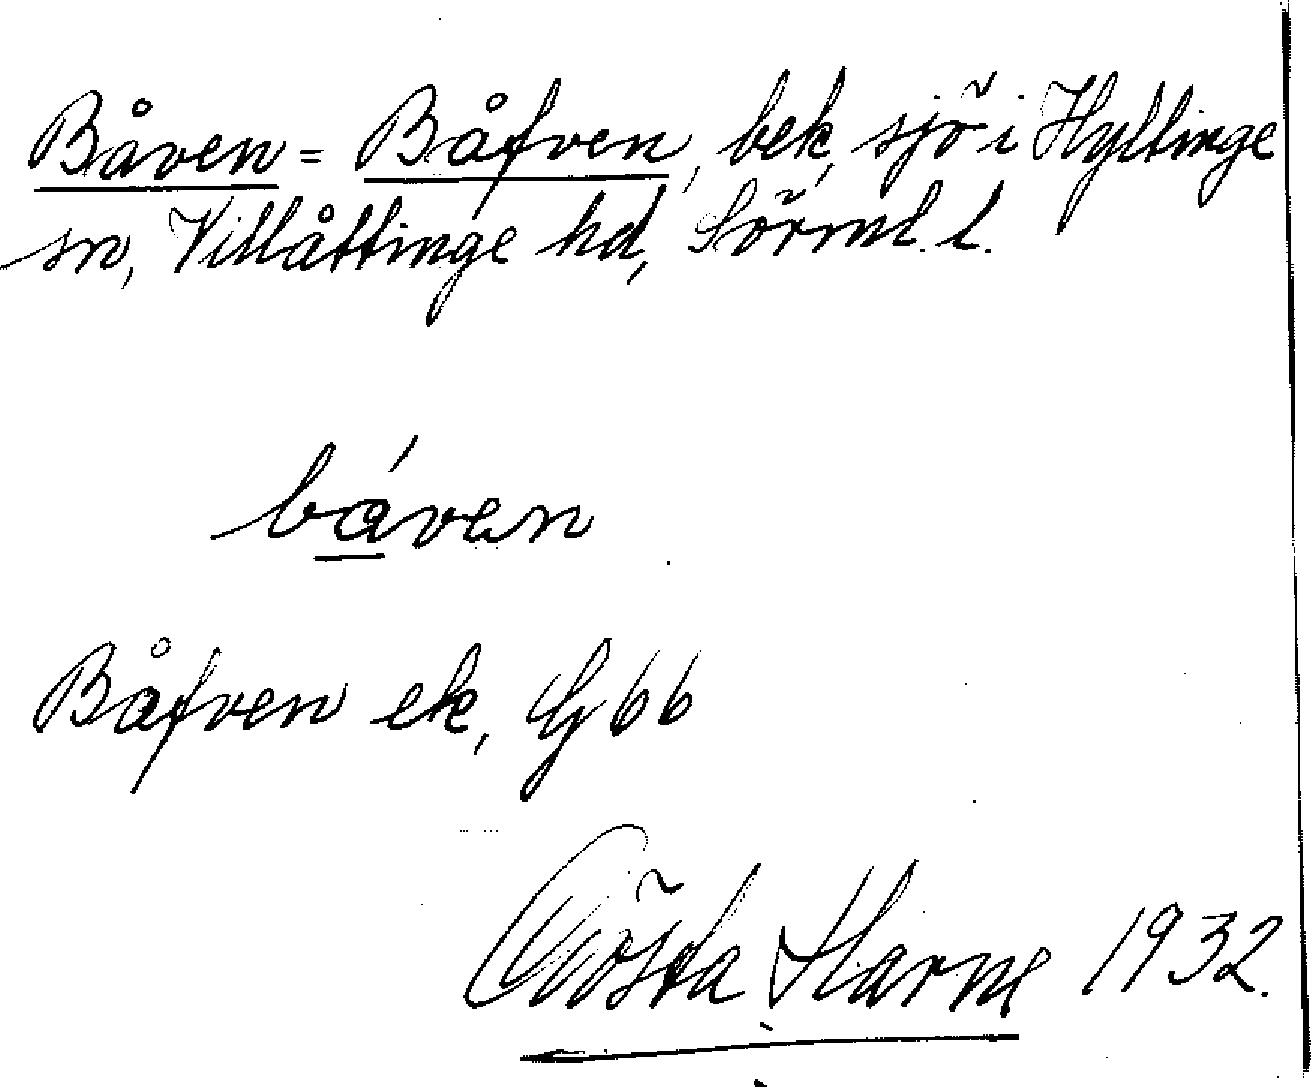 Båven = Båfven, bek, sjö i Hyltinge
sn, Villåttinge hd, Sörml. l.
båven
Båfven ek, G 66
Gösta Harne 1932.